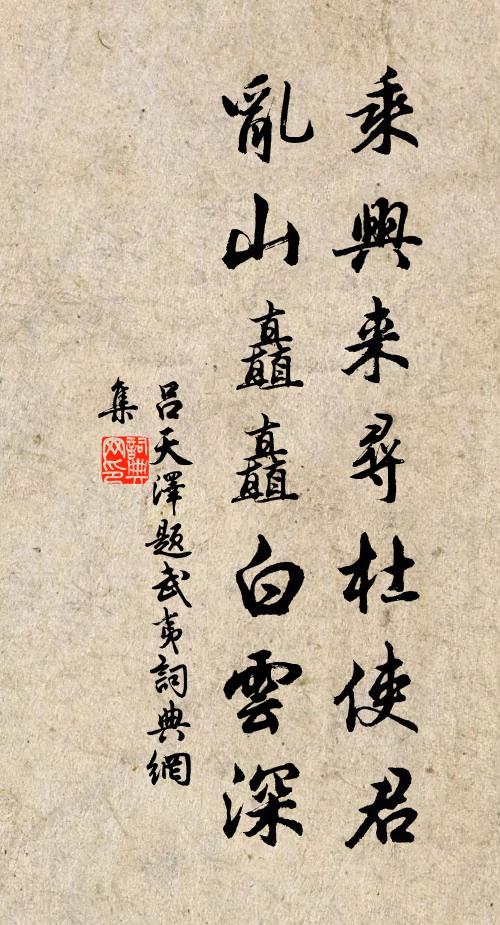 乘興来尋杜使君
亂山矗矗白雲深
吕天澤題武夷詞典網
集
詞典
网印